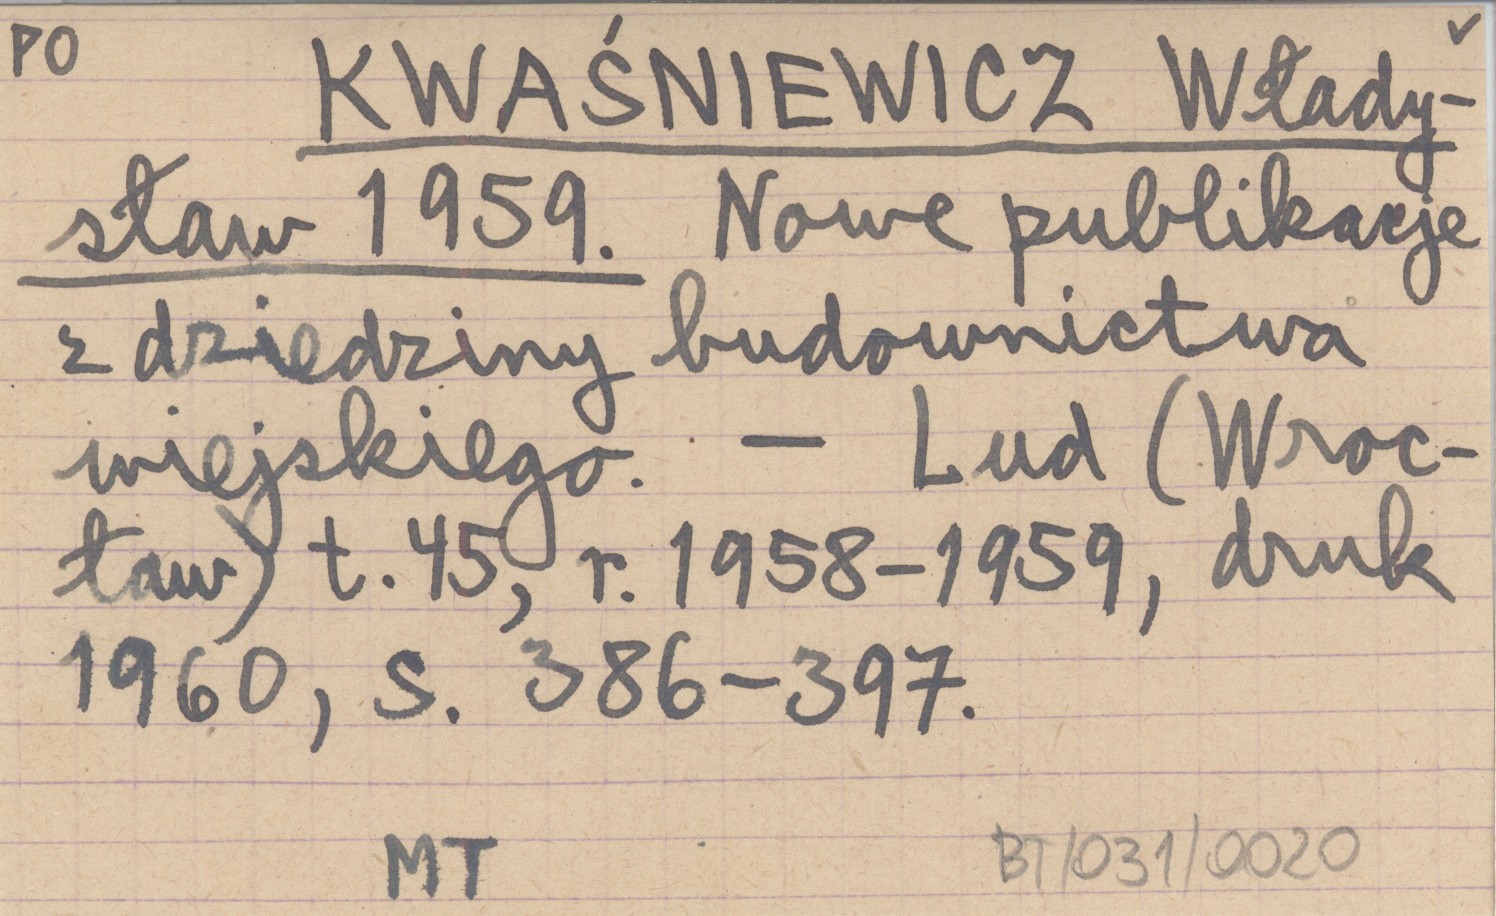 PO
KWAŚNIEWICZ Włady-
sław 1959. Nowe publikacje
z dziedziny budownictwa
wiejskiego. — Lud (Wroc-
ław) t. 45, r. 1958-1959, druk
1960, s. 386-397.
MT
BT/031/0020